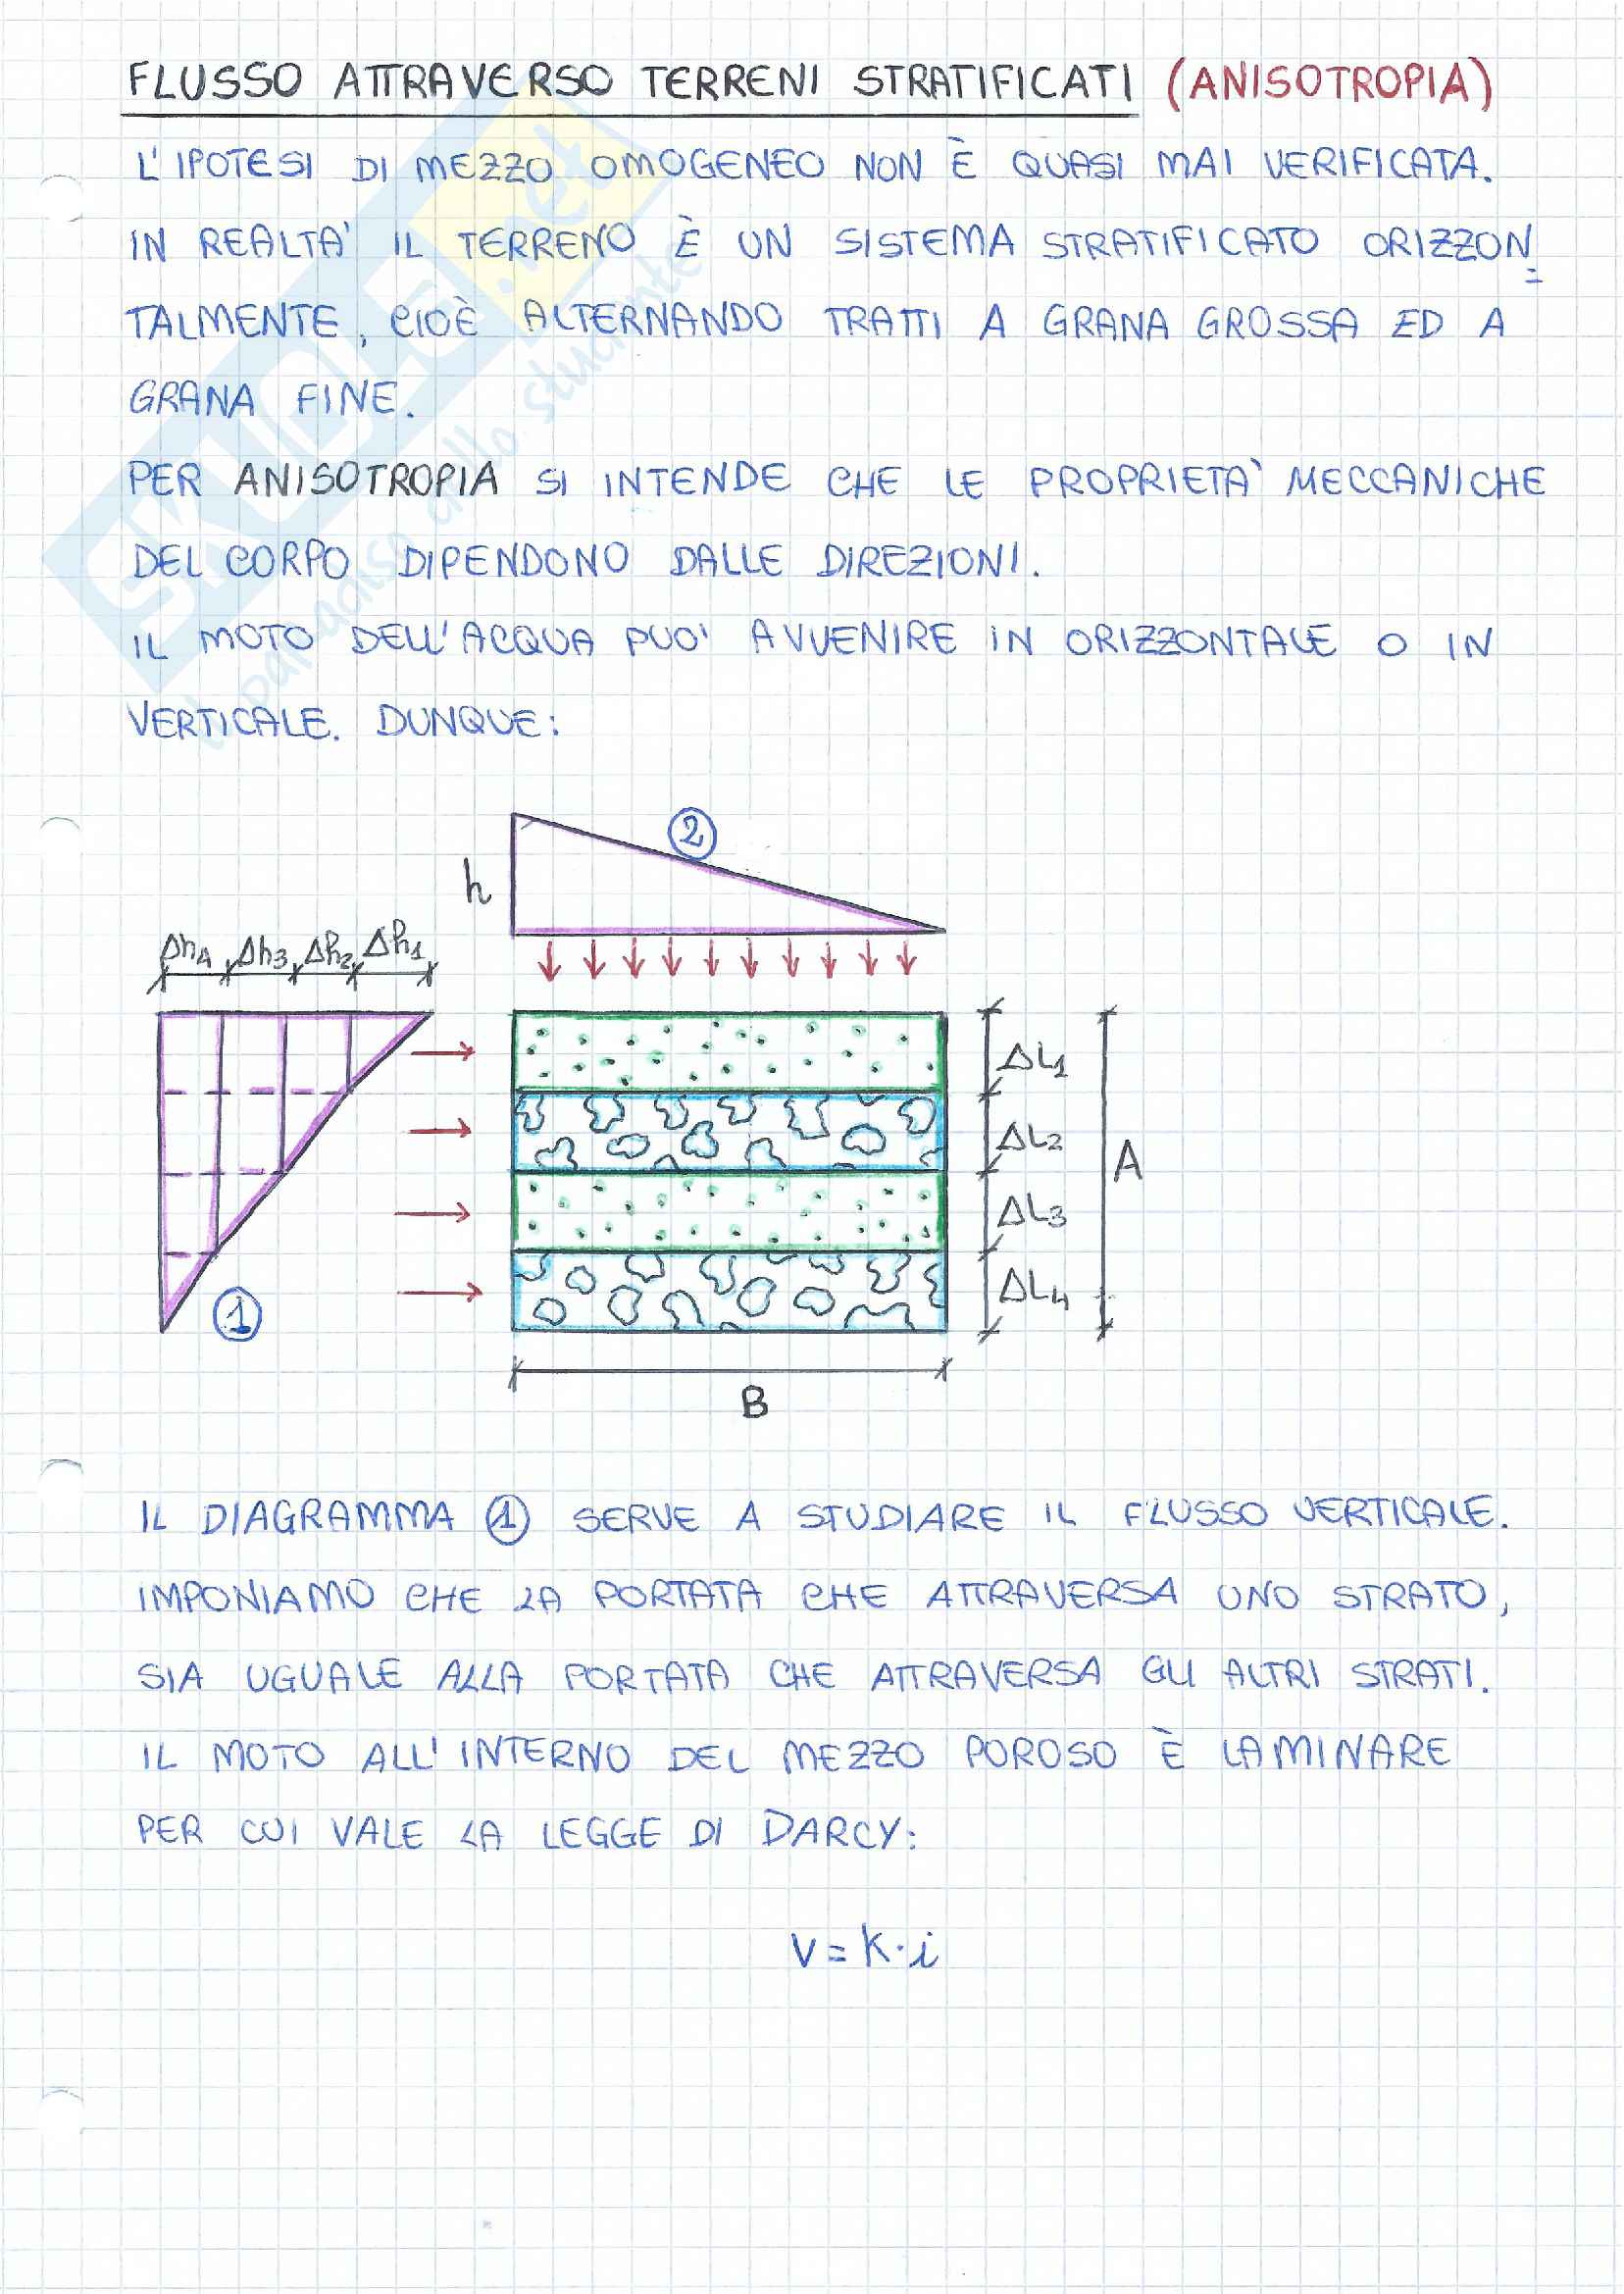 FLUSSO ATTRAVERSO TERRENI STRATIFICATI (ANISOTROPIA)
L'IPOTESI DI MEZZO OMOGENEO NON È QUASI MAI VERIFICATA.
IN REALTA' IL TERRENO È UN SISTEMA STRATIFICATO ORIZZON=
TALMENTE, CIOÈ ALTERNANDO TRATTI A GRANA GROSSA ED A
GRANA FINE.
PER ANISOTROPIA SI INTENDE CHE LE PROPRIETA' MECCANICHE
DEL CORPO DIPENDONO DALLE DIREZIONI.
IL MOTO DELL'ACQUA PUO' AVVENIRE IN ORIZZONTALE O IN
VERTICALE. DUNQUE:
2
h
Δh4 Δh3 Δh2 Δh1
ΔL1
ΔL2
A
ΔL3
ΔL4
1
B
IL DIAGRAMMA 1 SERVE A STUDIARE IL FLUSSO VERTICALE.
IMPONIAMO CHE LA PORTATA CHE ATTRAVERSA UNO STRATO,
SIA UGUALE ALLA PORTATA CHE ATTRAVERSA GLI ALTRI STRATI.
IL MOTO ALL'INTERNO DEL MEZZO POROSO È LAMINARE
PER CUI VALE LA LEGGE DI DARCY:
V = K · i
SKUOLA.net
il paradiso dello studente